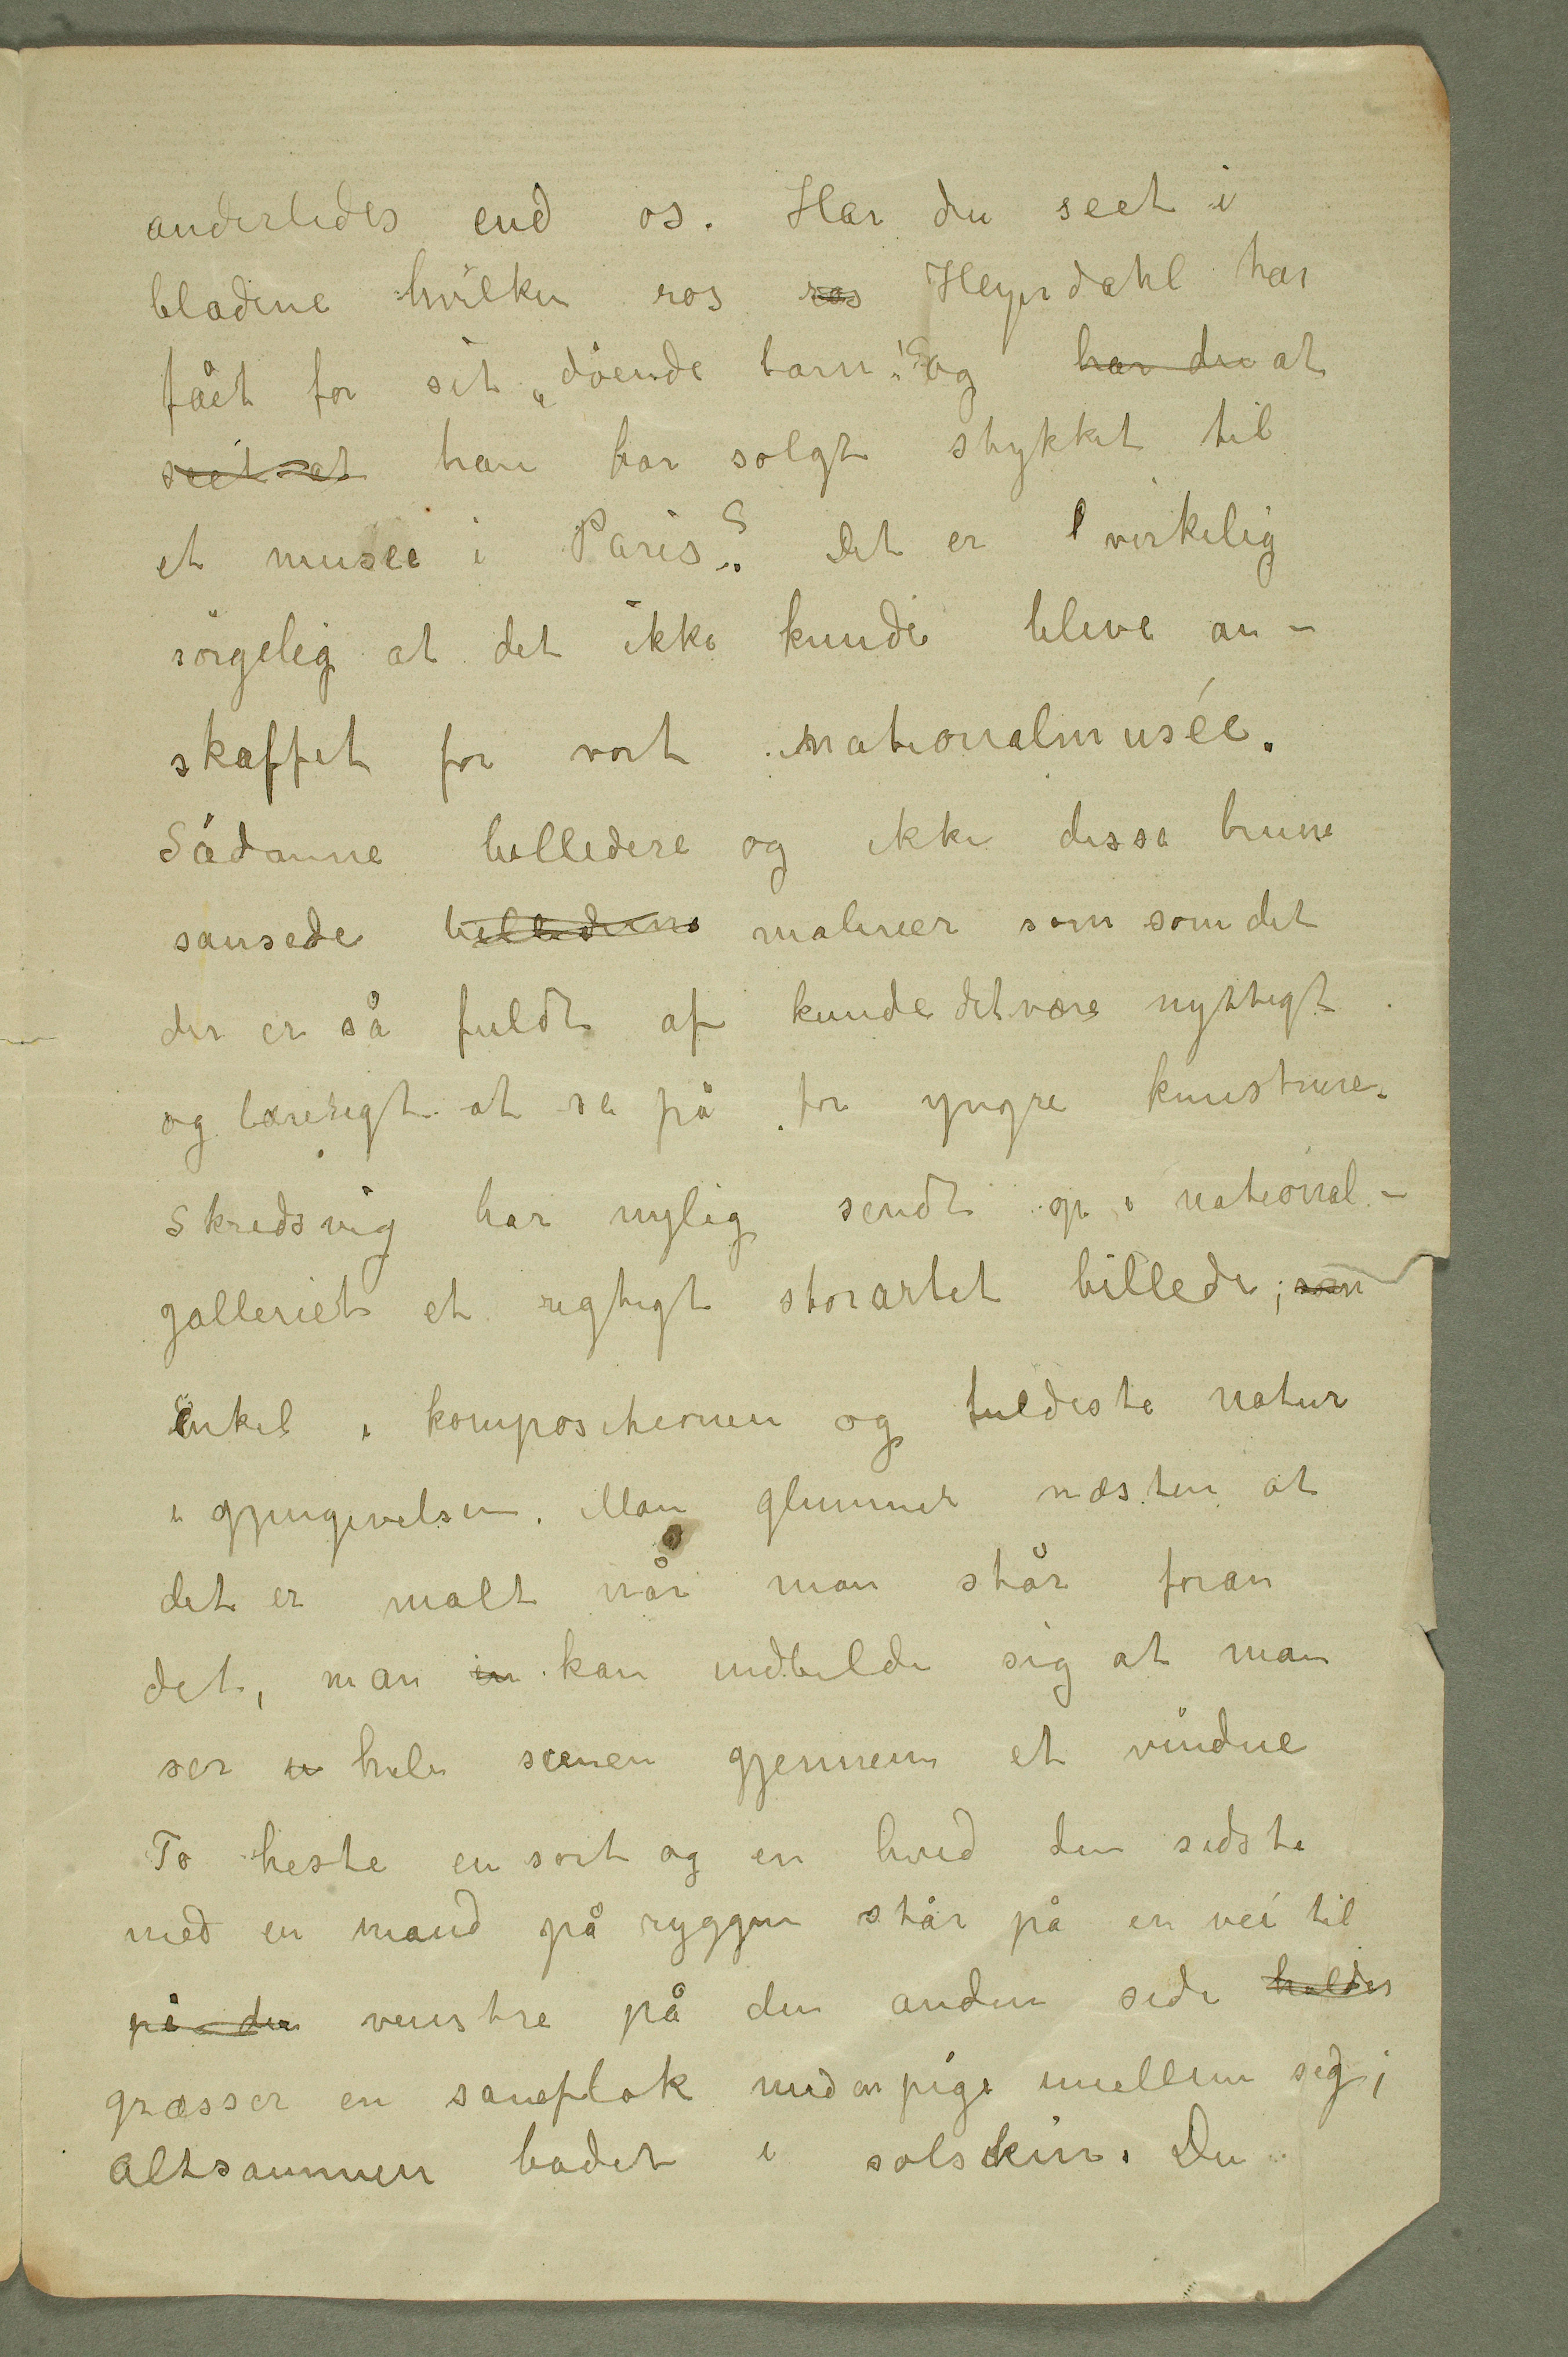 anderledes end os. Har du seet i
bladene hvilken ros ros Heyerdahl har
fået for sit „döende barn“? og har du at
seet at han har solgt stykket til
et musee i Paris? Det er virkelig
sörgelig at det ikke kunde bleve an-
skaffet for vort nationalmusée.
Sådanne billedere og ikke disse brune
sausede billederne malerier som som det
der er så fuldt af kunde det være nyttigt
og lærerigt at se på for yngre kunstnere.
Skredsvig har nylig sendt op i national-
galleriet et rigtigt storartet billede; som
Enkel i kompositionen og fuldeste natur
i gjengivelsen. Man glemmer næsten at
det er malt når man står foran
det, man in kan indbilde sig at man
ser hele scenen gjennem et vindue
To heste en sort og en hvid den sidste
med en mand på ryggen står på en vei til
på den venstre på den anden side holder
græsser en saueflok med en pige imellem sig;
altsammen badet i solskin. Du